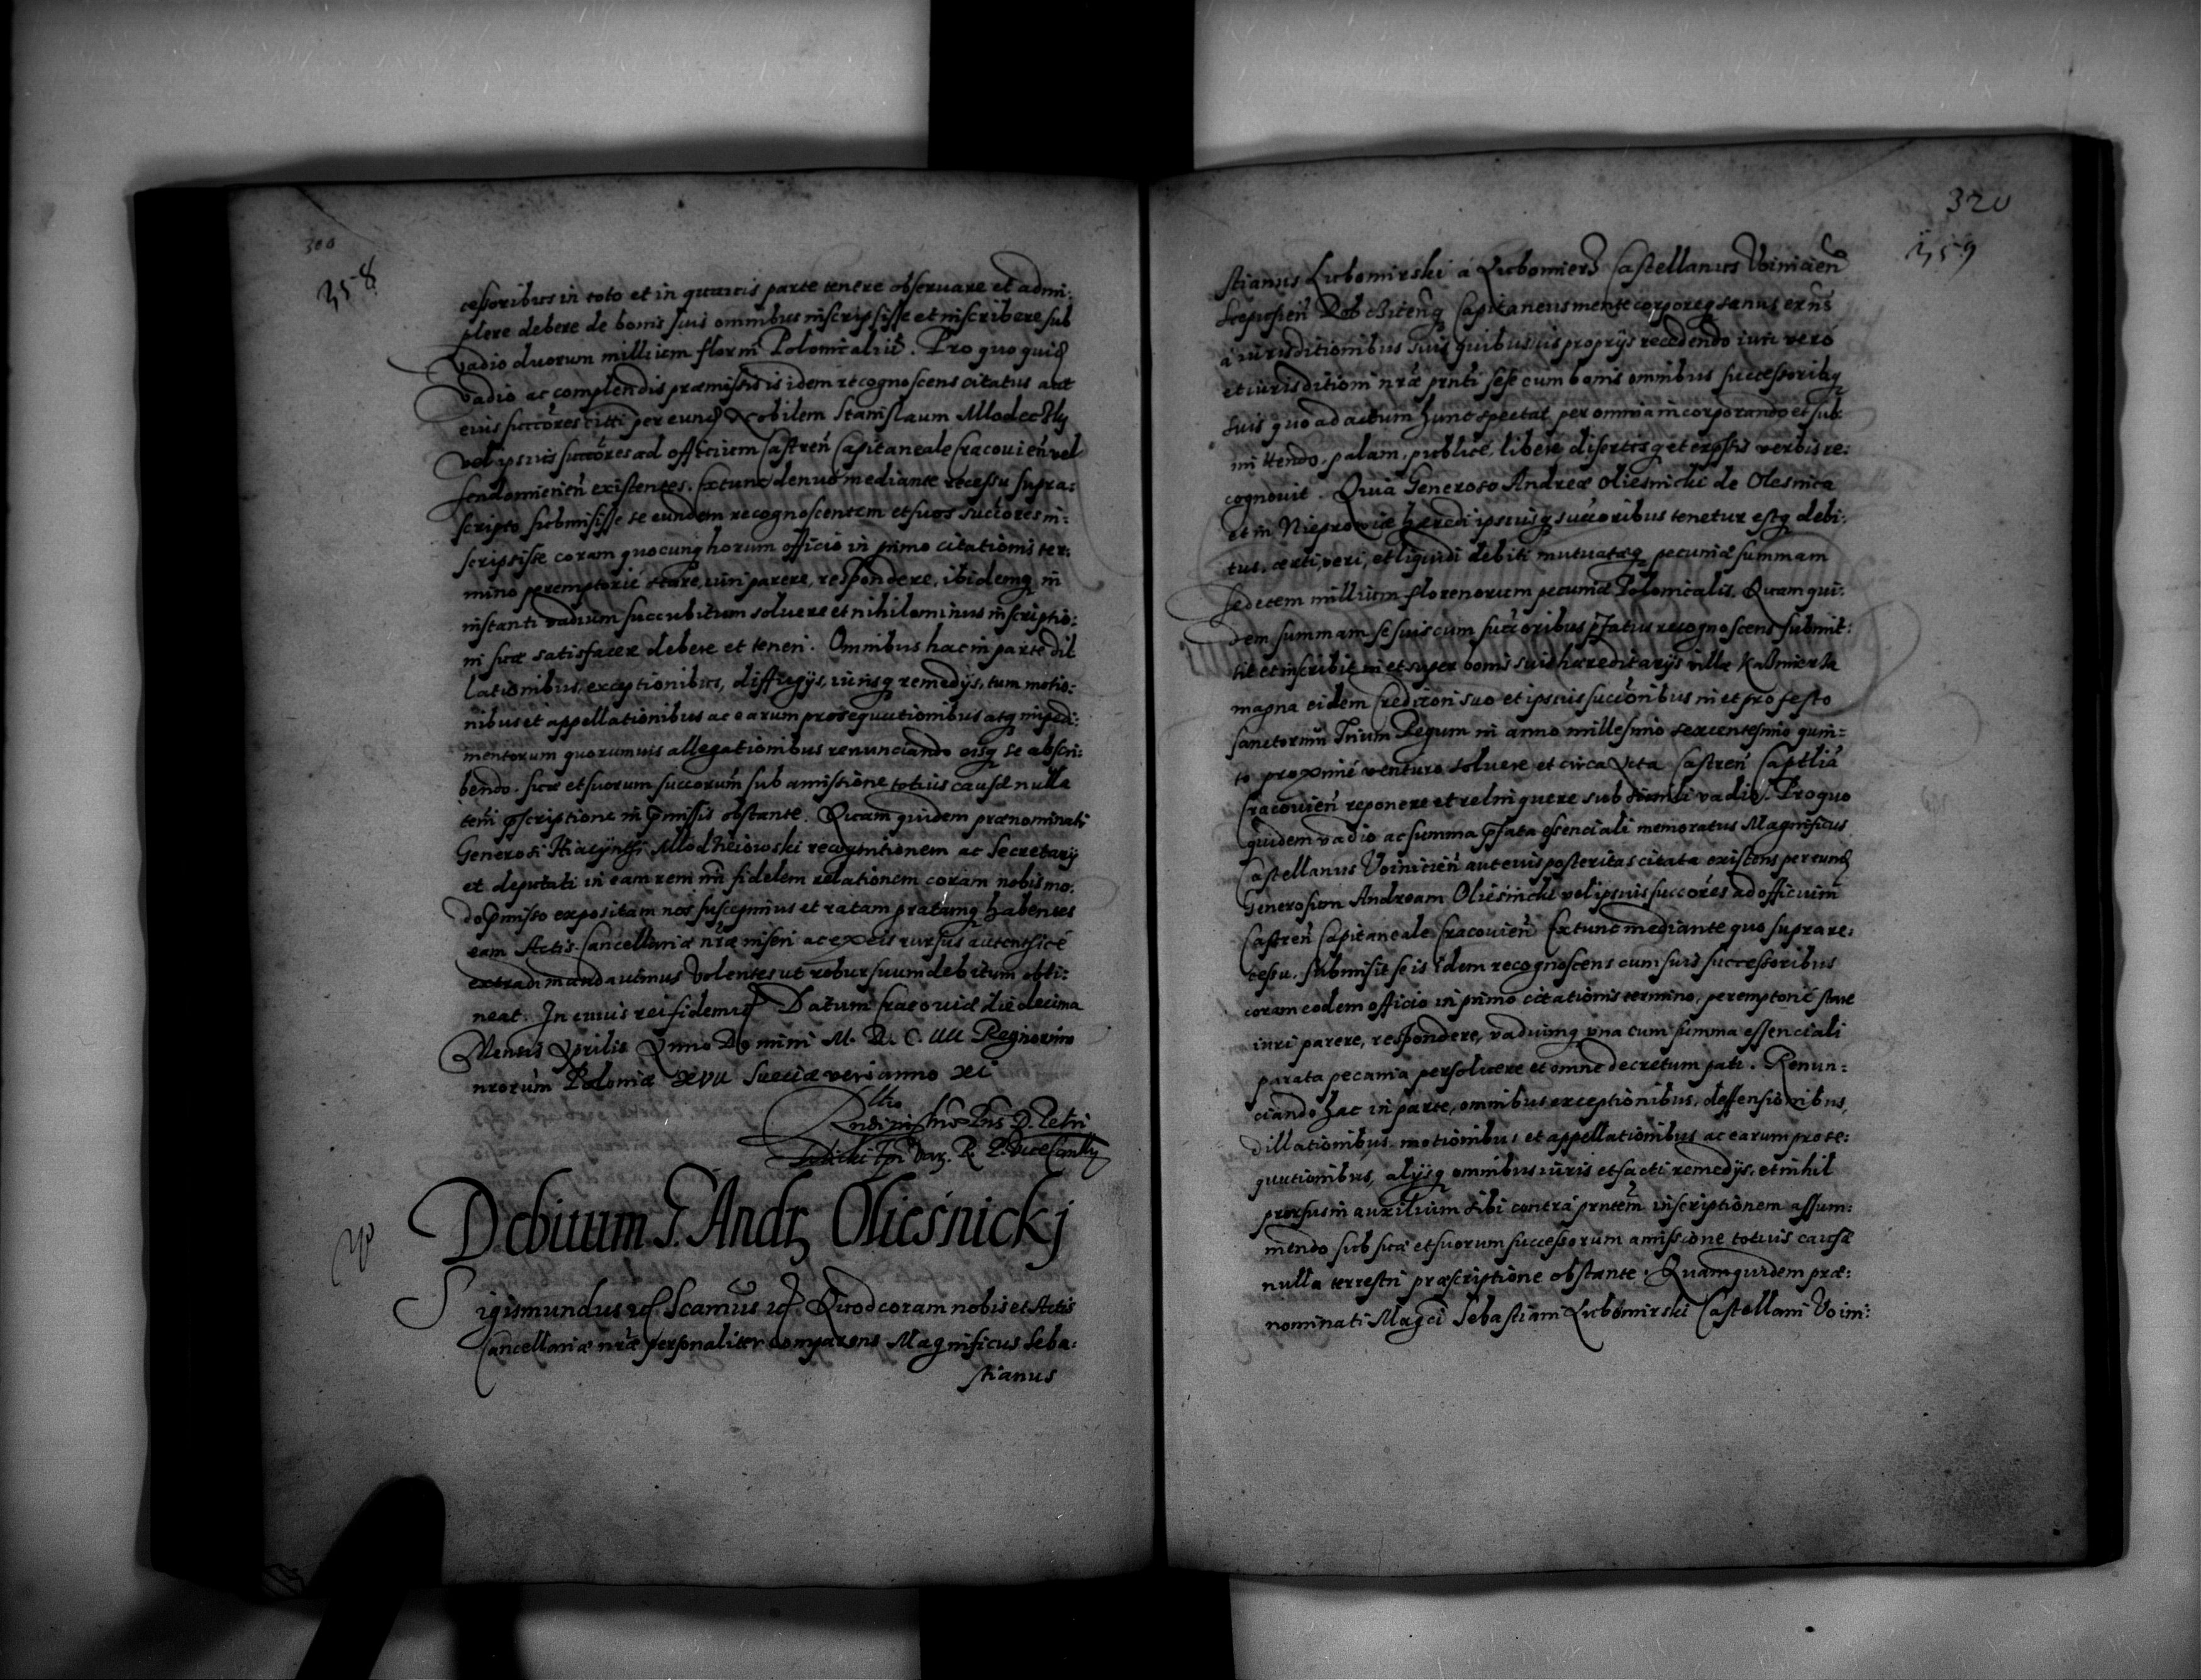 300
358
cessoribus in toto et in quauis parte tenere obseruare et admi:
plere debere de bonis suis omnibus inscripsisse et inscribere sub
vadio duorum millium florin Polonicaliū. Pro quo quid
vadio ac complendis præmissis is idem recognoscens citatus aut
eius succōres citti per eund Nobilem Stanislaum Mlodeczky
vel ipsius succōres ad officium Castreñ Capitaneale Cracouieñ vel
Sendomirieñ existentes. Extunc denuo mediante recessu supra:
scripto submisisse se eundem recognoscentem et suos succōres in:
scripsisse coram quocunq horum officio in primo citationis ter:
mino peremptorie stare, iuri parere, respondere, ibidemq in
instanti vadium succubitum soluere et nihilominus inscriptio:
ni suæ satisfacere debere et teneri. Omnibus hac in parte dil
lationibus, exceptionibus, diffugijs, iurisq remedijs, tum motio:
nibus et appellationibus ac earum prosequutionibus atq impedi:
mentorum quorumuis allegationibus renunciando eisq se abscri:
bendo. suæ et suorum succorum sub amissione totius causæ nulla
terñ pscriptione in pmissis obstante. Quam quidem prænominati
Generosi Hiacynthi Mlodzieiowski recognitionem ac Secretarij
et deputati in eam rem nri fidelem relationem coram nobis mo:
do pmisso expositam nos suscepimus et ratam gratamq habentes
eam Actis Cancellariæ nræ inseri ac ex eis rursus autenthicè
extradi mandauimus Volentes ut robur suum debitum obti:
neat. In cuius rei fidem Datum Cracouiæ die decima
Mensis Aprilis Anno Domini M. D. C. IIII Regnorum
nrorum Poloniæ XVII Sueciæ veri anno XI
Debitum G. Andr Oliesnickj
Sigismundus Scamus Quod coram nobis et Actis
Cancellariæ nræ personaliter comparens Magnificus Seba:
stianus
320
359
stianus Lubomirski à Lubomierz Castellanus Voinicieñ
Scepusieñ Dobcziceñq Capitaneus mente corporeq sanus exñs
à iurisditionibus suis quibusuis proprijs recedendo iuri vero
et iurisditioni nræ pñti sese cum bonis omnibus successoribq
suis quo ad actum hunc spectat per omnia incorporando et sub:
mittendo, palam, publicè, liberè disertisq et exprssis verbis re:
cognouit. Quia Generoso Andreæ Oliesnicki de Olesnica
et in Nieprowice hæredi ipsiusq succoribus tenetur estq debi:
tus, certi, veri, et liquidi debiti mutuatæq pecuniæ summam
sedecem millium florenorum pecuniæ Polonicalis. Quam qui:
dem summam se suis cum succoribus pfatus recognoscens submit:
tit et inscribit in et super bonis suis hæreditarijs villæ Kazmierza
magna eidem creditori suo et ipsius succoribus in et pro festo
sanctorum Trium Regum in anno millesimo sexcentesimo quin:
to proximè venturo soluere et circa Acta Castreñ Captlia
Cracouieñ reponere et relinquere sub simili vadio. Pro quo
quidem vadio ac summa pfata essenciali memoratus Magnificus
Castellanus Voinicieñ aut eius posteritas citata existens per eund
Generosum Andream Oliesnicki vel ipsius succores ad officium
Castreñ Capitaneale Cracouieñ Extunc mediante quo supra re:
cessu. submisit se is idem recognoscens cum suis successoribus
coram eodem officio in primo citationis termino, peremptoriè stare
iuri parere, respondere, vadiumq una cum summa essenciali
parata pecunia persoluere et omne decretum pati. Renun:
ciando hac in parte, omnibus exceptionibus, deffensionibus,
dillationibus motionibus et appellationibus ac earum prose:
quutionibus, alijsq omnibus iuris et facti remedijs, et nihil
prorsus in auxilium sibi contra pñtem inscriptionem assum:
mendo sub suæ et suorum successorum amissione totius causæ
nulla terrestri præscriptione obstante. Quam quidem præ:
nominati Magci Sebastiani Lubomirski Castellani Voini: